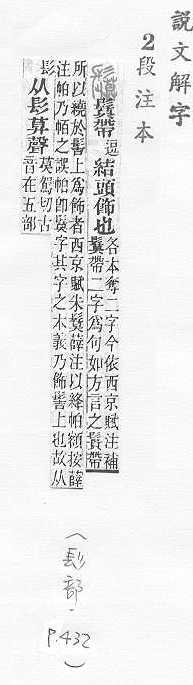 說文解字
2段注本
鬕帶逗結頭飾也各本奪二字今依西京賦注補
鬕帶二字爲句如方言之帶
所以繞於髻上爲飾者西京賦朱鬕薛注以絳帕額按薛
注帕乃帞之誤帞卽鬕字其字之本義乃飾髻上也故从
髟从髟莫聲莫駕切古
音在五部
(髟部.
P.432)